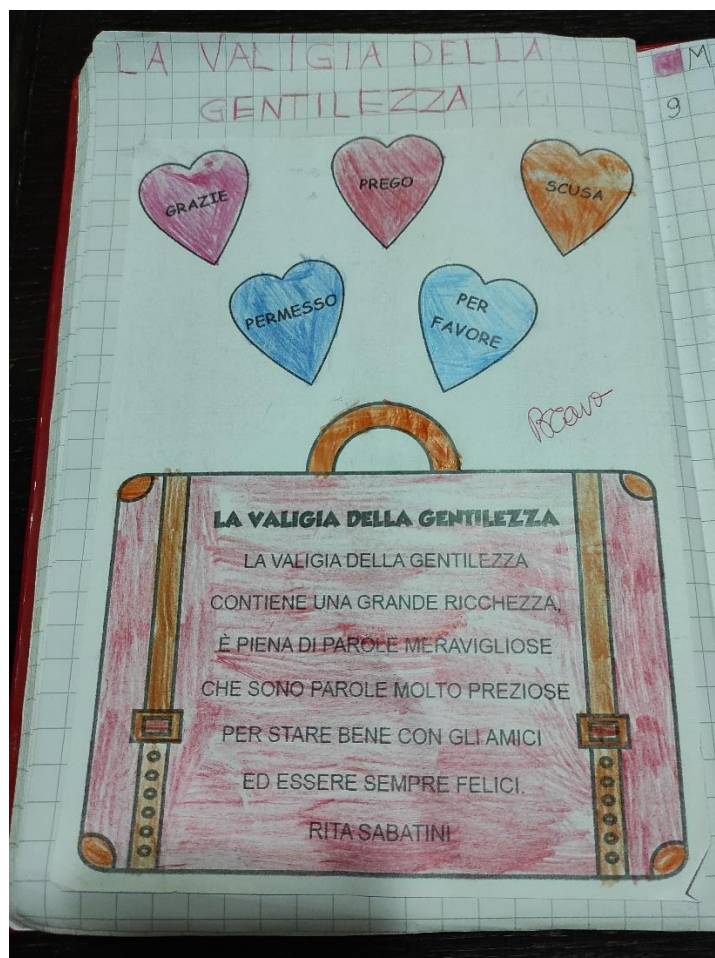 LA VALIGIA DELLA
GENTILEZZA
M
9
GRAZIE
PREGO
SCUSA
PERMESSO
PER
FAVORE
Bravo
LA VALIGIA DELLA GENTILEZZA
LA VALIGIA DELLA GENTILEZZA
CONTIENE UNA GRANDE RICCHEZZA,
È PIENA DI PAROLE MERAVIGLIOSE
CHE SONO PAROLE MOLTO PREZIOSE
PER STARE BENE CON GLI AMICI
ED ESSERE SEMPRE FELICI.
RITA SABATINI